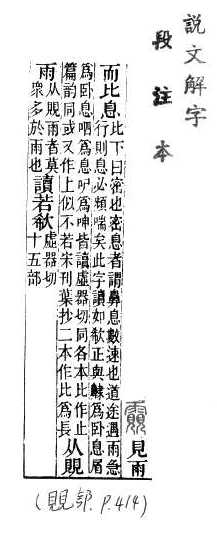 説文解字
段注本
見雨
而比息
比下曰密也密息者謂鼻息數速也道途遇雨急
行則息必頻喘矣此字讀如欷正與齂爲卧息㞒
爲卧息呬爲息㕧爲呻皆讀虛器切同各本比作止
篇韵同或又作上似不若宋刊葉抄二本作比爲長
从覞
雨
从覞雨者莫
衆多於雨也
讀若欷
虛器切
十五部
(覞部. P.414)